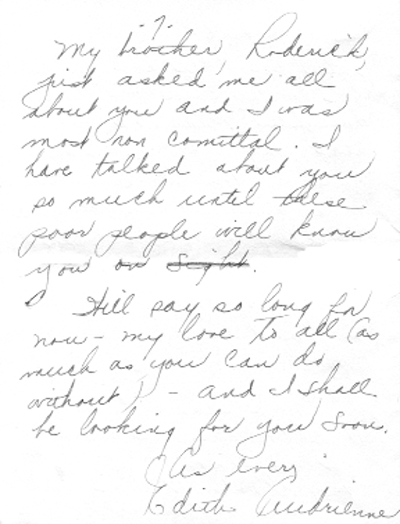 -7-
My brother, Roderick,
just asked me all
about you and I was
most non comittal. I
have talked about you
so much until these
poor people will know
you on sight.
Will say so long for
now - my love to all (as
much as you can do
without) - and I shall
be looking for you soon.
As ever,
Edith Audrienne